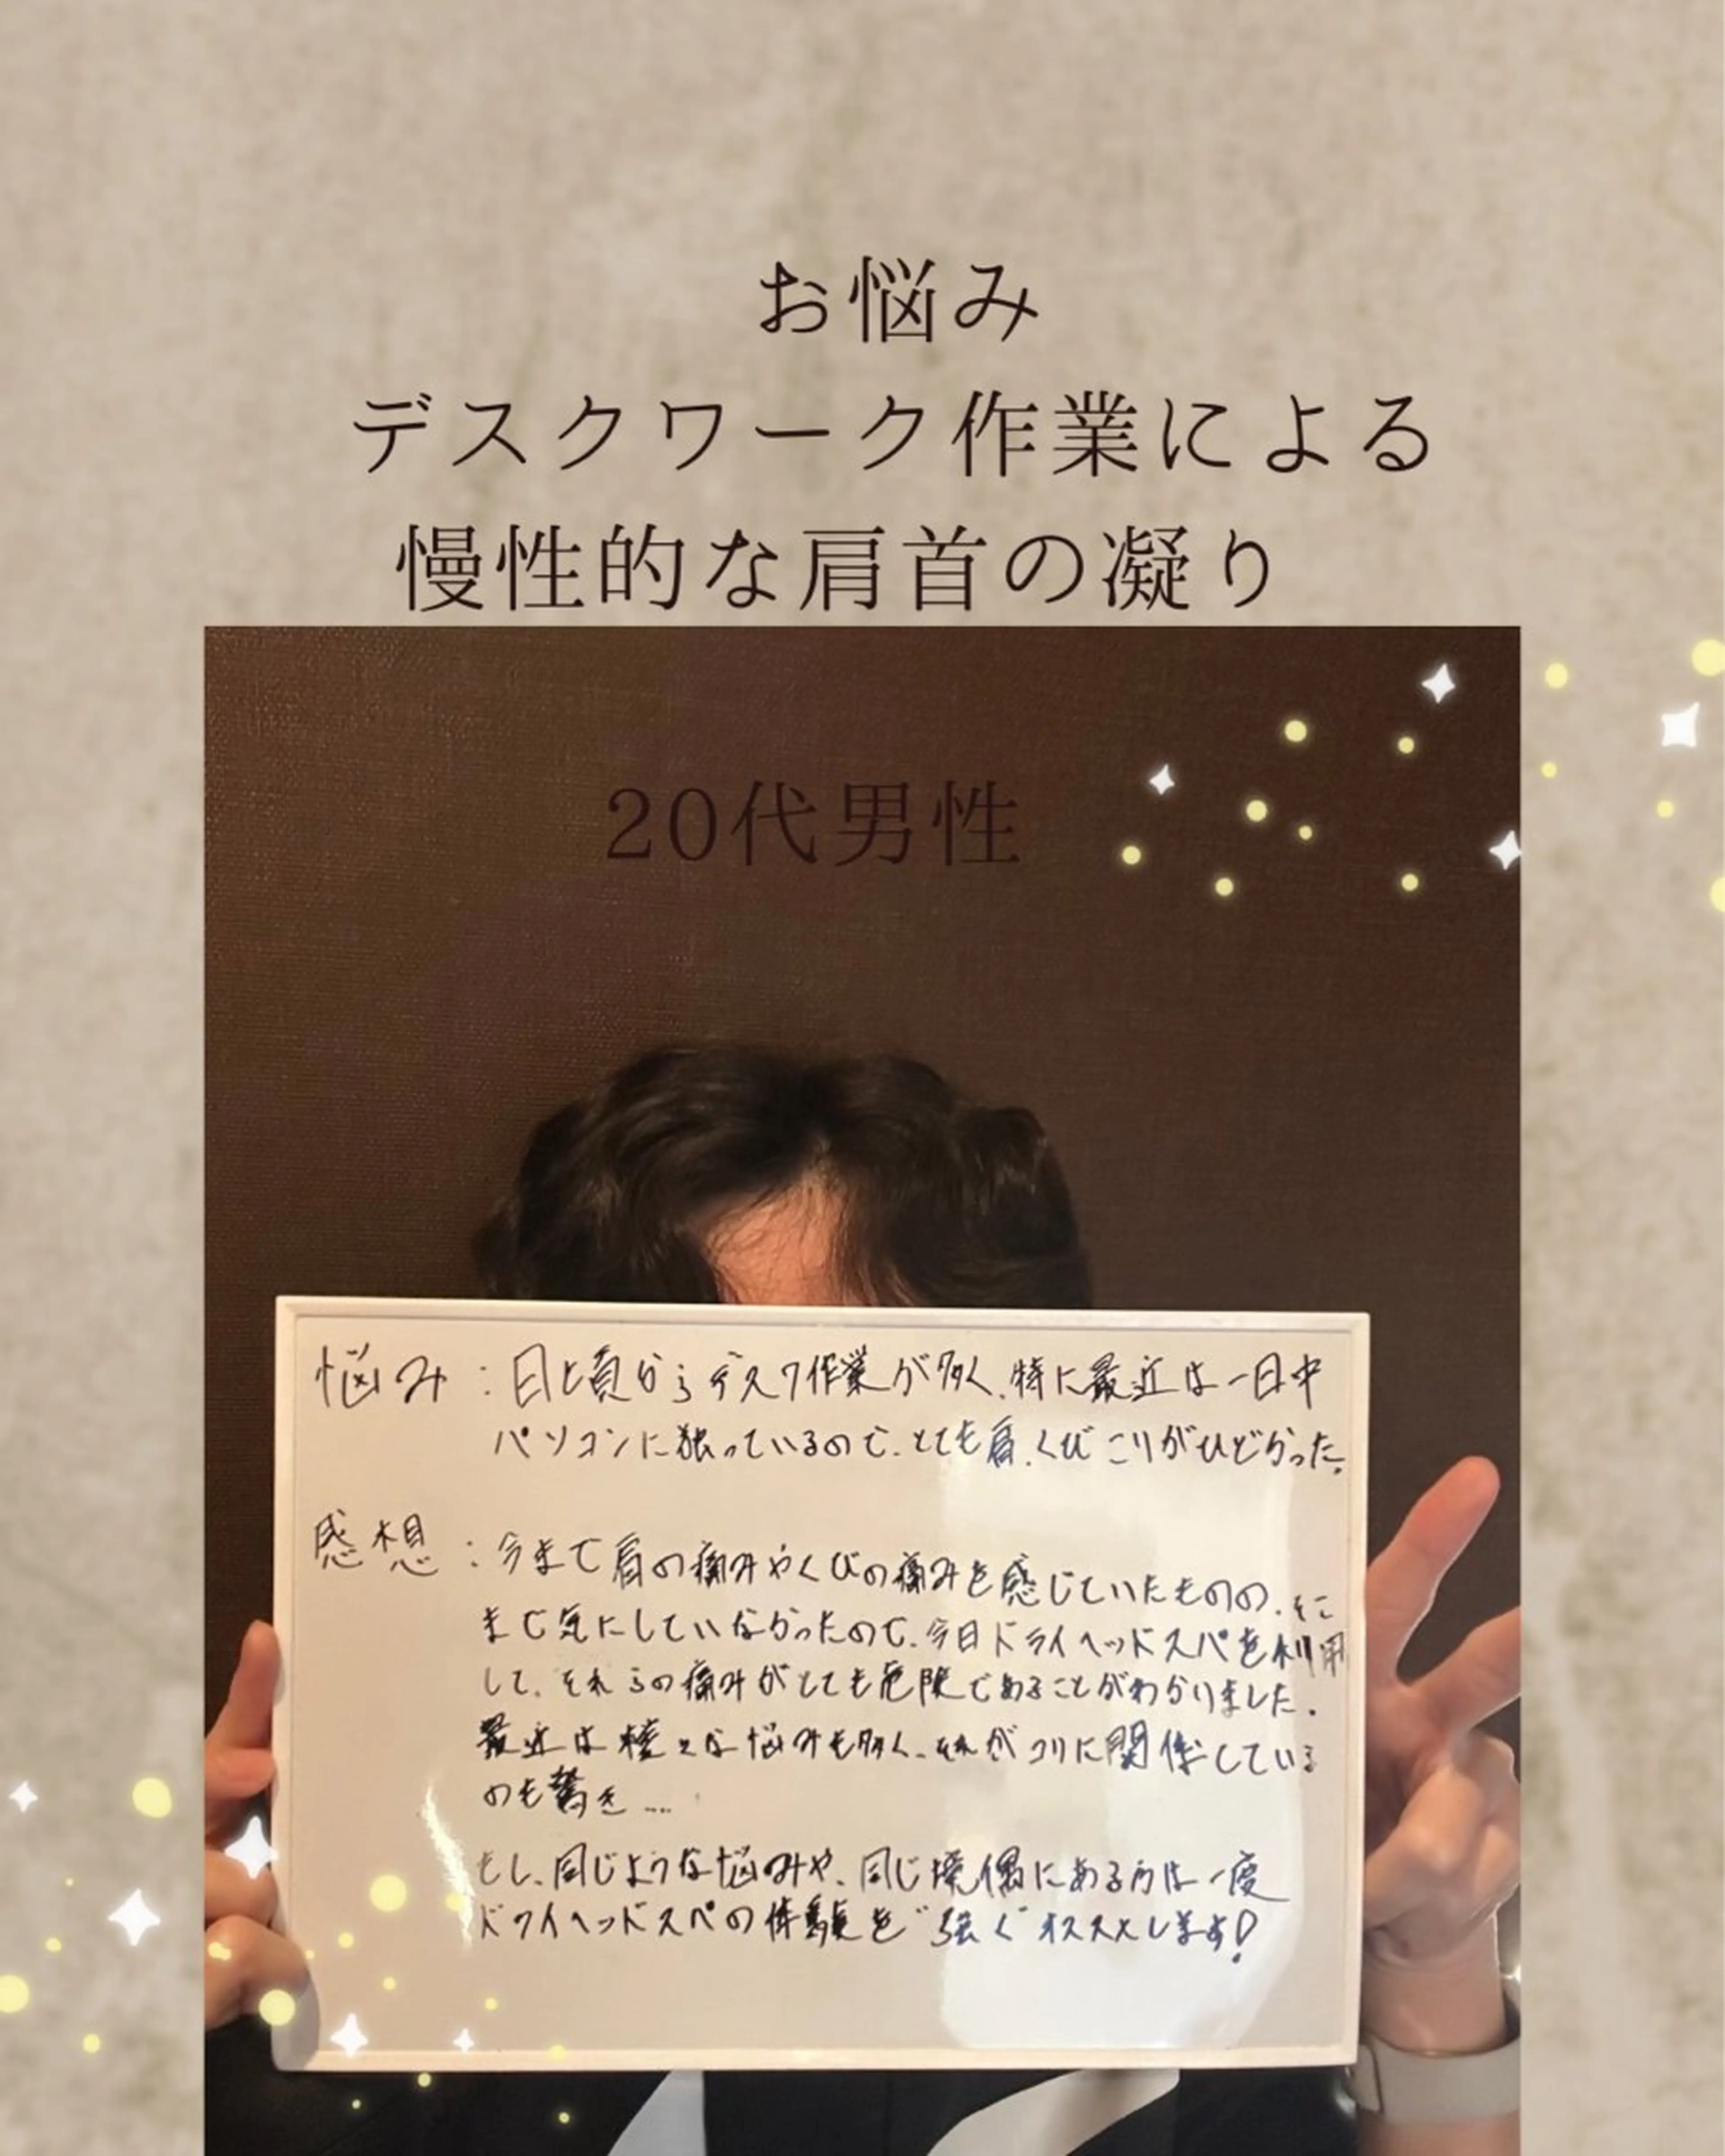 お悩み
デスクワーク作業による
慢性的な肩首の凝り
20代男性
悩み:日頃からデスク作業が多く、特に最近は一日中
パソコンに触っているので、とても肩、くびこりがひどかった。
感想:今まで肩の痛みやくびの痛みを感じていたものの、そこ
まで気にしていなかったので、今日ドライヘッドスパを利用
して、それらの痛みがとても危険であることがわかりました。
最近は様々な悩みも多く、それがコリに関係している
のも驚き....
もし、同じような悩みや、同じ境偶にある方は一度
ドライヘッドスパの体験を"強く"オススメします!